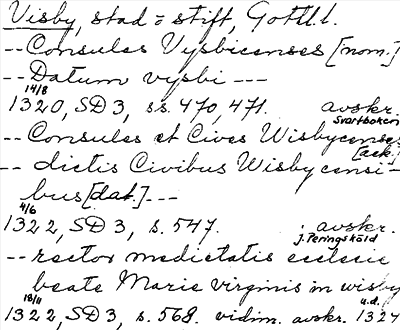 Visby, stad o stift, Gotl.l.
-- Consules Vysbicenses [nom.]
-- Datum vysbi ---
14/8
1320, SD 3, s.s. 470, 471. avskr.
Svartboken
-- Consules et Cives Wisbycenses
[ack.]
-- dictis Civibus Wisbycensi-
bus [dat.] ---
4/6
1322, SD 3, s. 547. avskr.
J. Peringskiöld
-- rector medietatis ecclesie
beate Marie virginis in wisby
18/11 u.d.
1322, SD 3, s. 568. vidim. avskr. 1324